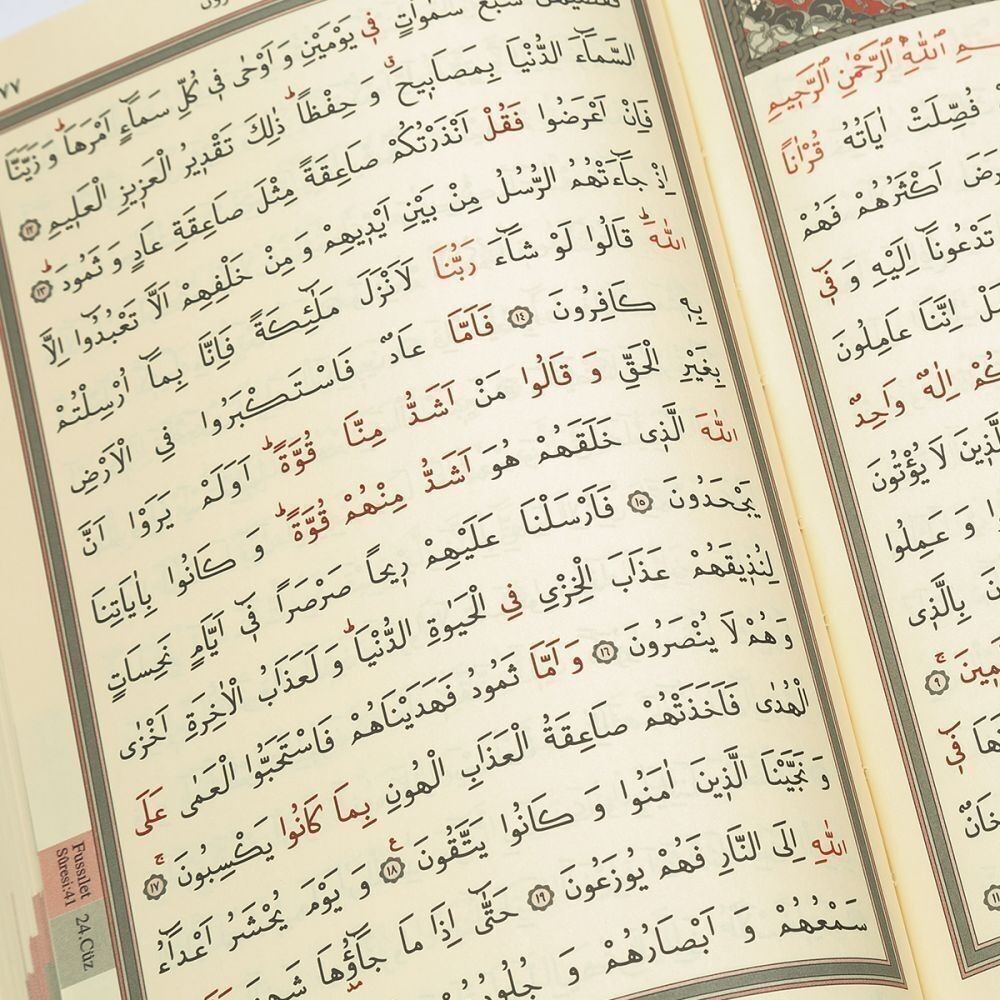 اللّٰهِ الرَّحْمٰنِ الرَّحٖيمِ
فُصِّلَتْ اٰيَاتُهُ قُرْاٰناً
اَكْثَرُهُمْ فَهُمْ
تَدْعُونَٓا اِلَيْهِ وَ فٖٓى
اِنَّنَا عَامِلُونَ
اِلٰهٌ وَاحِدٌ
لَا يُؤْتُونَ
وَ عَمِلُوا
بِالَّذٖى
٩
فٖٓى
١١
٧٧
سَبْعَ سَمٰوَاتٍ فٖى يَوْمَيْنِ وَ اَوْحٰى فٖى كُلِّ سَمَٓاءٍ اَمْرَهَاؕ وَ زَيَّنَّا
السَّمَٓاءَ الدُّنْيَا بِمَصَابٖيحَۗ وَ حِفْظاًؕ ذٰلِكَ تَقْدٖيرُ الْعَزٖيزِ الْعَلٖيمِ ١٢
فَاِنْ اَعْرَضُوا فَقُلْ اَنْذَرْتُكُمْ صَاعِقَةً مِثْلَ صَاعِقَةِ عَادٍ وَ ثَمُودَؕ ١٣
اِذْ جَٓاءَتْهُمُ الرُّسُلُ مِنْ بَيْنِ اَيْدٖيهِمْ وَ مِنْ خَلْفِهِمْ اَلَّا تَعْبُدُٓوا اِلَّا
اللّٰهَؕ قَالُوا لَوْ شَٓاءَ رَبُّنَا لَاَنْزَلَ مَلٰٓئِكَةً فَاِنَّا بِمَٓا اُرْسِلْتُمْ
بِهٖ كَافِرُونَ ١٤ فَاَمَّا عَادٌ فَاسْتَكْبَرُوا فِى الْاَرْضِ
بِغَيْرِ الْحَقِّ وَ قَالُوا مَنْ اَشَدُّ مِنَّا قُوَّةًؕ اَوَلَمْ يَرَوْا اَنَّ
اللّٰهَ الَّذٖى خَلَقَهُمْ هُوَ اَشَدُّ مِنْهُمْ قُوَّةًؕ وَ كَانُوا بِاٰيَاتِنَا
يَجْحَدُونَ ١٥ فَاَرْسَلْنَا عَلَيْهِمْ رٖيحاً صَرْصَراً فٖٓى اَيَّامٍ نَحِسَاتٍ
لِنُذٖيقَهُمْ عَذَابَ الْخِزْىِ فِى الْحَيٰوةِ الدُّنْيَاؕ وَ لَعَذَابُ الْاٰخِرَةِ اَخْزٰى
وَ هُمْ لَا يُنْصَرُونَ ١٦ وَ اَمَّا ثَمُودُ فَهَدَيْنَاهُمْ فَاسْتَحَبُّوا الْعَمٰى عَلَى
الْهُدٰى فَاَخَذَتْهُمْ صَاعِقَةُ الْعَذَابِ الْهُونِ بِمَا كَانُوا يَكْسِبُونَۚ ١٧
وَ نَجَّيْنَا الَّذٖينَ اٰمَنُوا وَ كَانُوا يَتَّقُونَ ١٨ وَ يَوْمَ يُحْشَرُ اَعْدَٓاءُ
اللّٰهِ اِلَى النَّارِ فَهُمْ يُوزَعُونَ ١٩ حَتّٰٓى اِذَا مَا جَٓاؤُ۫هَا
سَمْعُهُمْ وَ اَبْصَارُهُمْ وَ
Fussılet
Sûresi:41
24.Cüz